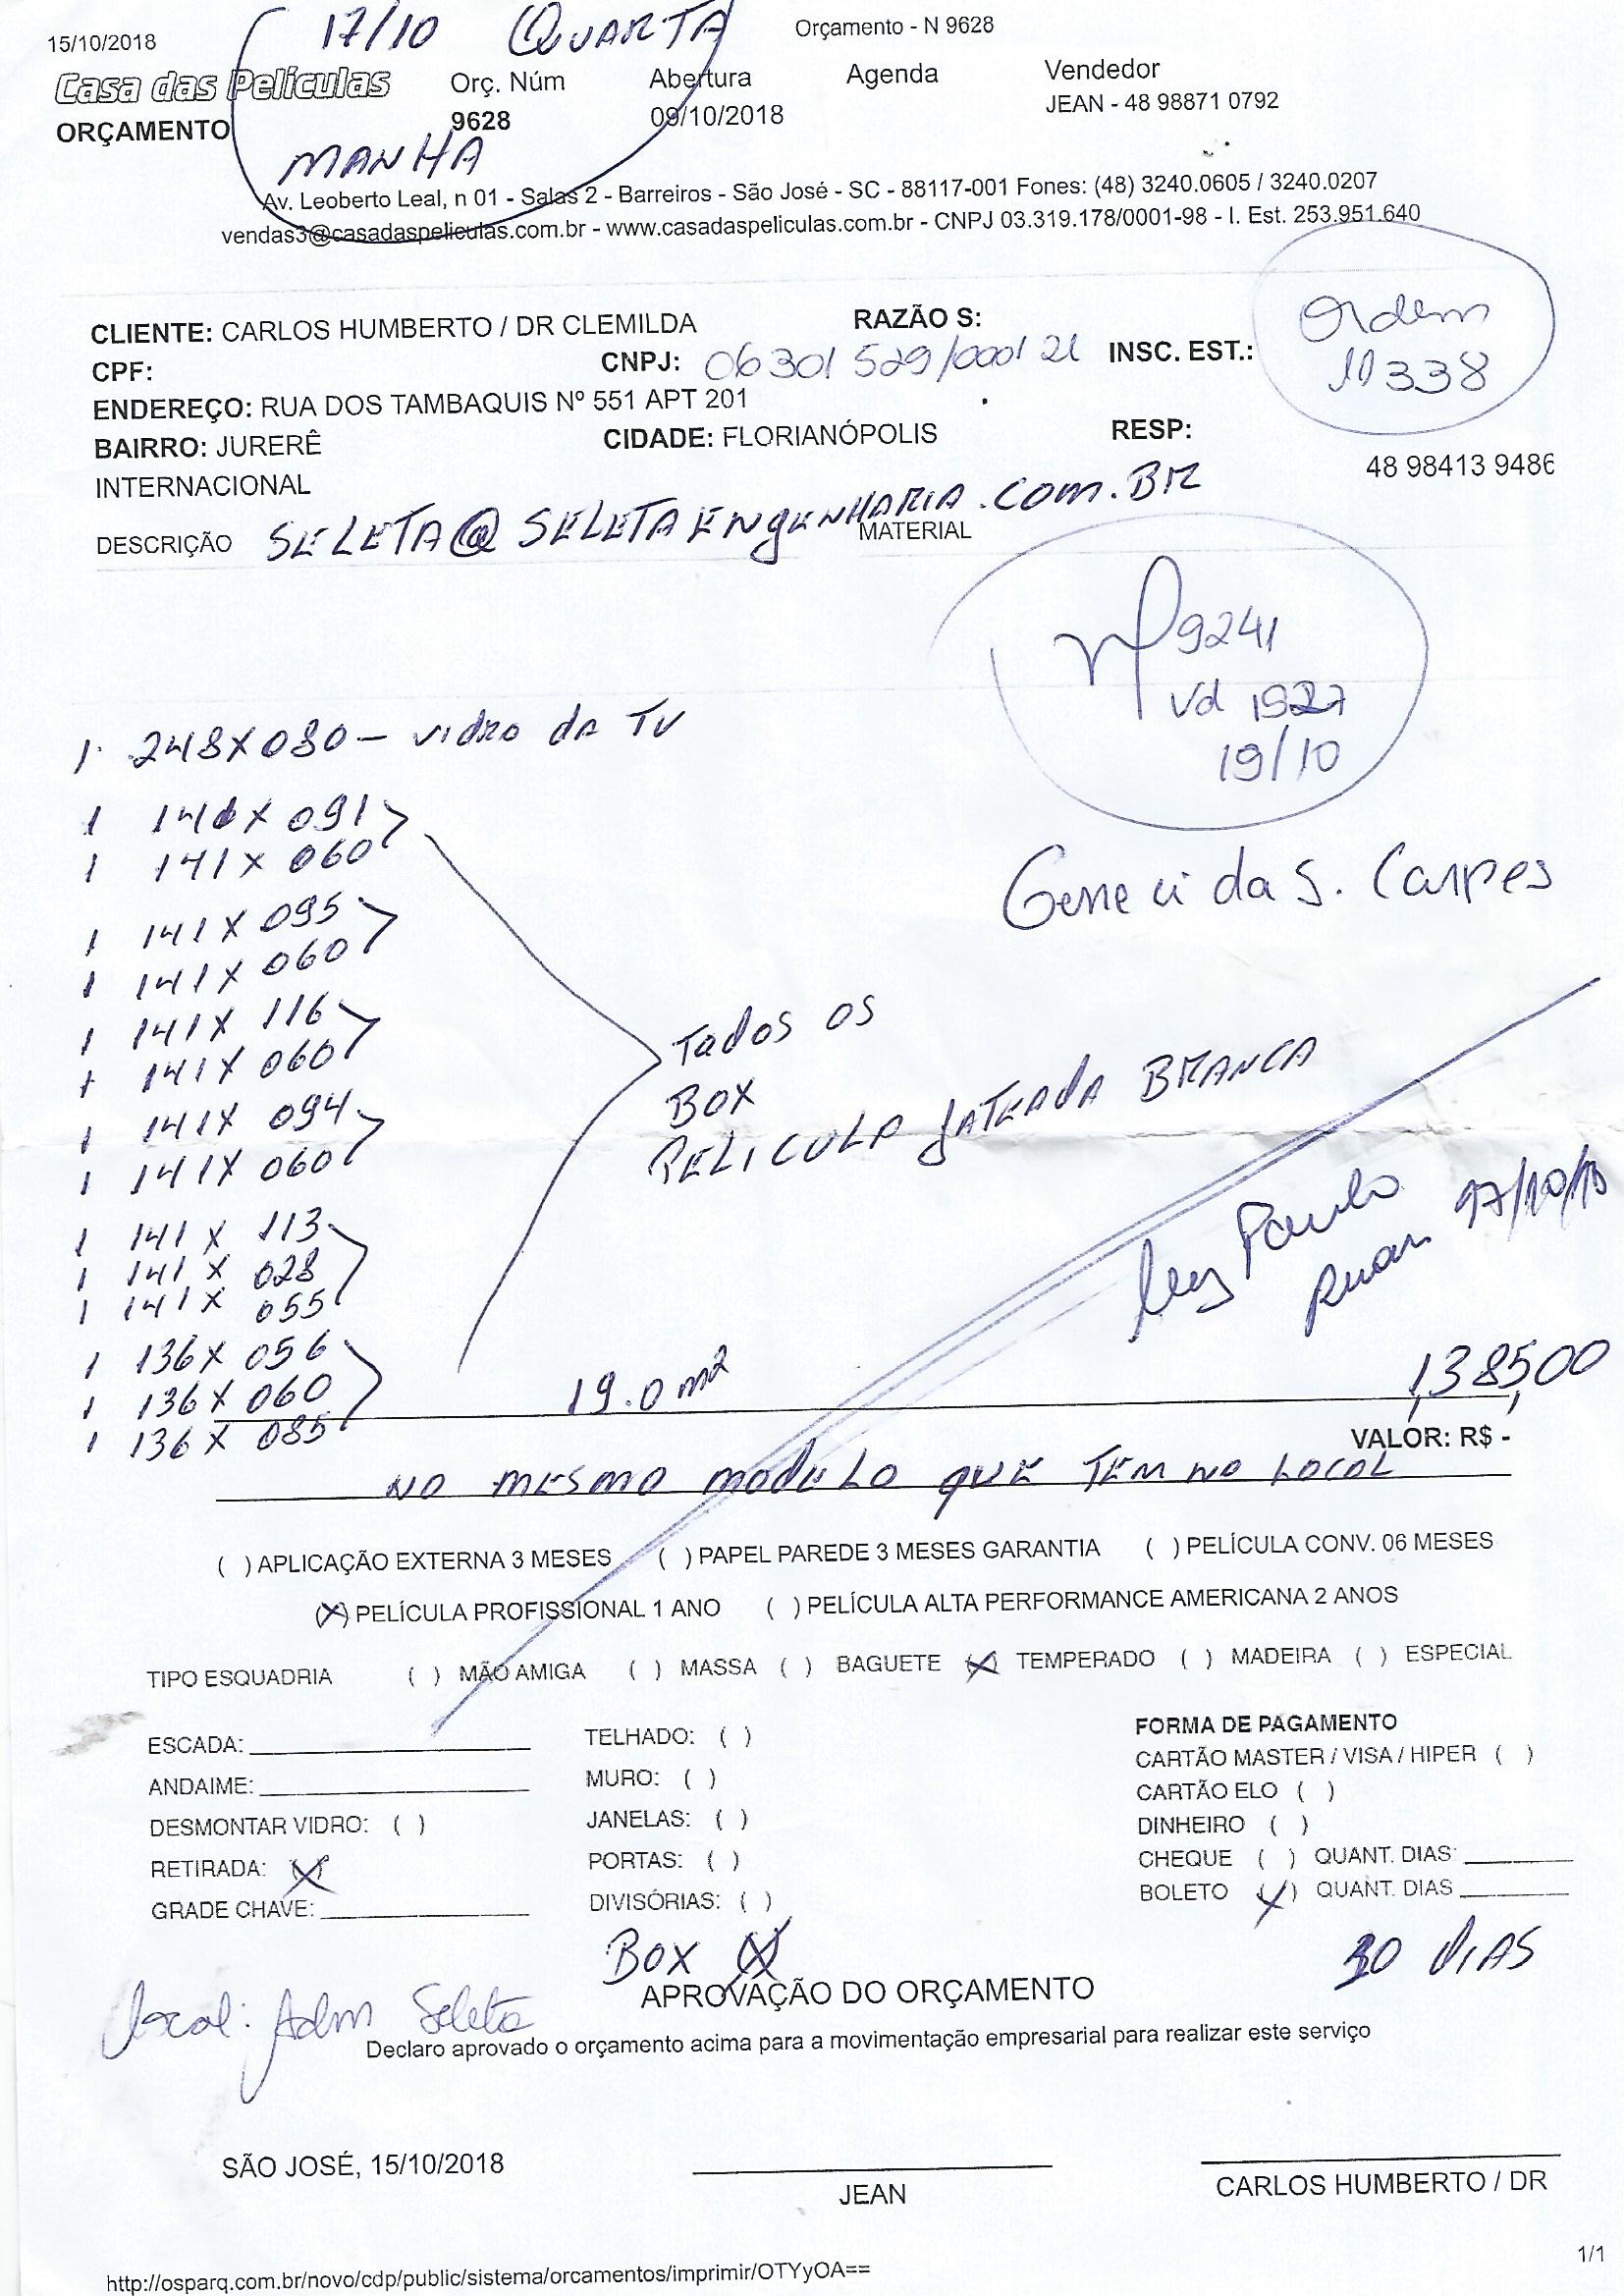 17/10 QUARTA
15/10/2018 Orçamento - N 9628
Casa das Películas Orç. Núm Abertura Agenda Vendedor
ORÇAMENTO 9628 09/10/2018 JEAN - 48 98871 0792
MANHA
Av. Leoberto Leal, n 01 - Salas 2 - Barreiros - São José - SC - 88117-001 Fones: (48) 3240.0605 / 3240.0207
vendas3@casadaspeliculas.com.br - www.casadaspeliculas.com.br - CNPJ 03.319.178/0001-98 - I. Est. 253.951.640
CLIENTE: CARLOS HUMBERTO / DR CLEMILDA RAZÃO S: Ordem
CPF: CNPJ: 06301529/0001 21 INSC. EST.: 10338
ENDEREÇO: RUA DOS TAMBAQUIS Nº 551 APT 201
BAIRRO: JURERÊ CIDADE: FLORIANÓPOLIS RESP:
INTERNACIONAL 48 98413 9486
DESCRIÇÃO SELETA@SELETAENGENHARIA.COM.BR MATERIAL
nf 9241
vd 1927
19/10
1 248X080 - vidro da TV
1 141X 091
1 141X 060
1 141X 095
1 141X 060
1 141X 116
1 141X 060
1 141X 094
1 141X 060
1 141 X 113
1 141 X 028
1 141X 055
1 136X 056
1 136X 060
1 136X 085
Geneci da S. Carpes
Tados os
BOX
PELICULA JATEADA BRANCA
Paulo
Ruan 17/10/18
19.0 m²
1,385,00
VALOR: R$ -
NO MESMO MODULO QUE TEM NO LOCAL
( ) APLICAÇÃO EXTERNA 3 MESES ( ) PAPEL PAREDE 3 MESES GARANTIA ( ) PELÍCULA CONV. 06 MESES
(X) PELÍCULA PROFISSIONAL 1 ANO ( ) PELÍCULA ALTA PERFORMANCE AMERICANA 2 ANOS
TIPO ESQUADRIA ( ) MÃO AMIGA ( ) MASSA ( ) BAGUETE (X) TEMPERADO ( ) MADEIRA ( ) ESPECIAL
ESCADA:
ANDAIME:
DESMONTAR VIDRO: ( )
RETIRADA: (X)
GRADE CHAVE:
TELHADO: ( )
MURO: ( )
JANELAS: ( )
PORTAS: ( )
DIVISÓRIAS: ( )
BOX (X)
FORMA DE PAGAMENTO
CARTÃO MASTER / VISA / HIPER ( )
CARTÃO ELO ( )
DINHEIRO ( )
CHEQUE ( ) QUANT. DIAS:
BOLETO (X) QUANT. DIAS
30 DIAS
APROVAÇÃO DO ORÇAMENTO
Local: Adm Seleta
Declaro aprovado o orçamento acima para a movimentação empresarial para realizar este serviço
SÃO JOSÉ, 15/10/2018
JEAN
CARLOS HUMBERTO / DR
1/1
http://osparq.com.br/novo/cdp/public/sistema/orcamentos/imprimir/OTYyOA==